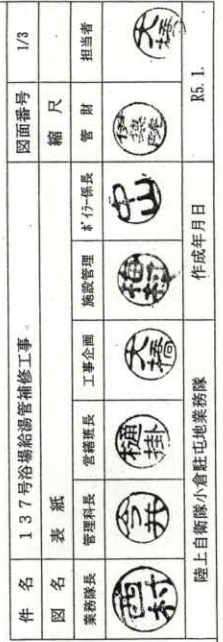 件 名 137号浴場給湯管補修工事 図面番号 1/3
図 名 表 紙 縮 尺
業務隊長 管理科長 営繕班長 工事企画 施設管理 ボイラー係長 管 財 担当者
西村 今井 樋掛 大橋 中山 大橋
陸上自衛隊小倉駐屯地業務隊 作成年月日 R5.1.